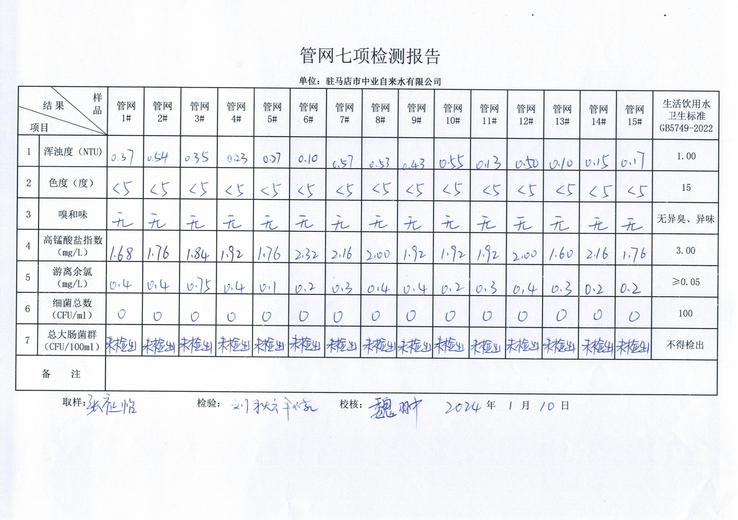 管网七项检测报告
单位：驻马店市中业自来水有限公司
结果 样品 项目 管网1# 管网2# 管网3# 管网4# 管网5# 管网6# 管网7# 管网8# 管网9# 管网10# 管网11# 管网12# 管网13# 管网14# 管网15# 生活饮用水卫生标准GB5749-2022
1 浑浊度（NTU） 0.37 0.54 0.35 0.23 0.27 0.10 0.57 0.53 0.43 0.55 0.13 0.50 0.10 0.15 0.17 1.00
2 色度（度） <5 <5 <5 <5 <5 <5 <5 <5 <5 <5 <5 <5 <5 <5 <5 15
3 嗅和味 无 无 无 无 无 无 无 无 无 无 无 无 无 无 无 无异臭、异味
4 高锰酸盐指数（mg/L） 1.68 1.76 1.84 1.92 1.76 2.32 2.16 2.00 1.92 1.92 1.92 2.00 1.60 2.16 1.76 3.00
5 游离余氯（mg/L） 0.4 0.4 0.75 0.4 0.1 0.2 0.3 0.4 0.4 0.2 0.3 0.4 0.3 0.2 0.2 ≥0.05
6 细菌总数（CFU/ml） 0 0 0 0 0 0 0 0 0 0 0 0 0 0 0 100
7 总大肠菌群（CFU/100ml） 未检出 未检出 未检出 未检出 未检出 未检出 未检出 未检出 未检出 未检出 未检出 未检出 未检出 未检出 未检出 不得检出
备 注
取样： 检验： 校核：魏 2024 年 1 月 10 日